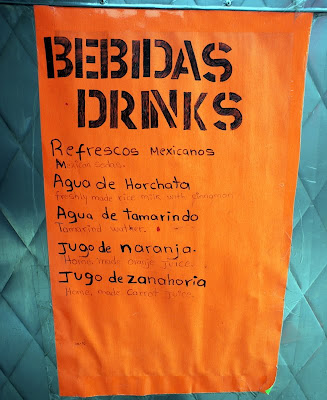 BEBIDAS
DRINKS
Refrescos Mexicanos
Mexican
Agua de Horchata
freshly made rice milk with cinnamon
Agua de tamarindo
Tamarind
Jugo de naranja.
Home made orange juice.
Jugo de zanahoria
Home made carrot juice.